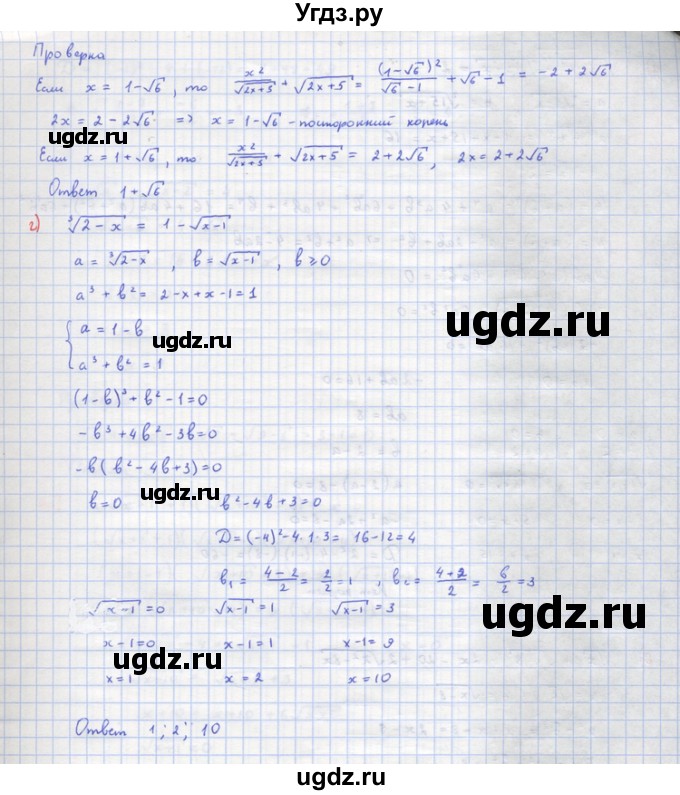 Угдз.ру
Проверка
Если x = 1-√6, то x²/√(2x+5) + √(2x+5) = (1-√6)²/(√6-1) + √6 - 1 = -2+2√6
2x = 2-2√6 => x = 1-√6 - посторонний корень
ugdz.ru
ugdz.ru
Если x = 1+√6, то x²/√(2x+5) + √(2x+5) = 2+2√6, 2x = 2+2√6
Ответ 1+√6
г) ³√(2-x) = 1 - √(x-1)
a = ³√(2-x), b = √(x-1), b ⩾ 0
a³ + b² = 2-x+x-1 = 1
ugdz.ru
{ a = 1-b
ugdz.ru
a³ + b² = 1
(1-b)³ + b² - 1 = 0
-b³ + 4b² - 3b = 0
-b(b² - 4b + 3) = 0
ugdz.ru
b = 0 b² - 4b + 3 = 0
D = (-4)² - 4·1·3 = 16-12 = 4
b₁ = (4-2)/2 = 2/2 = 1, b₂ = (4+2)/2 = 6/2 = 3
√(x-1) = 0 √(x-1) = 1 √(x-1) = 3
ugdz.ru
x-1 = 0 x-1 = 1 x-1 = 9
ugdz.ru
x = 1 x = 2 x = 10
Ответ 1; 2; 10
ugdz.ru